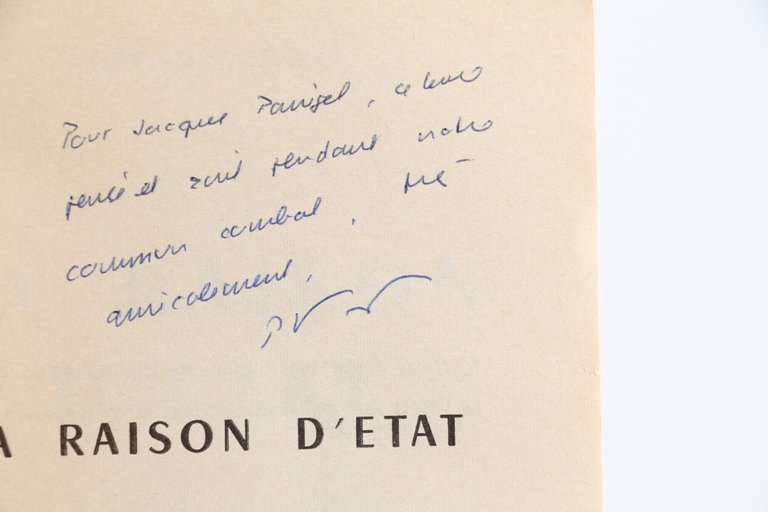 Pour Jacques Panijel, ce livre
pensé et écrit pendant notre
commun combat, très
amicalement,
PV
A RAISON D'ETAT